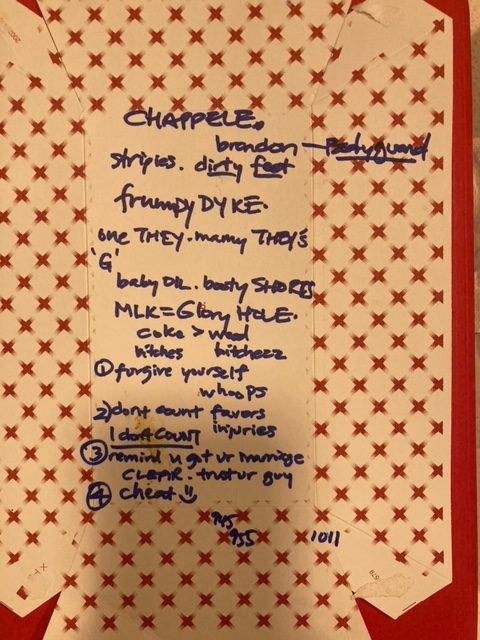 CHAPPELE.
brandon — Bodyguard
stripies. dirty feet
frumpy DYKE.
one THEY. many THEY's
'G'
baby DR. booty SHORTS
MLK = Glory HOLE.
coke > weed
bitches bitchezz
① forgive yourself
whoops
2) dont count favors
injuries
I dont COUNT
③ remind u got ur marriage
CLEAR. trust ur guy
④ cheat
945
955
1011